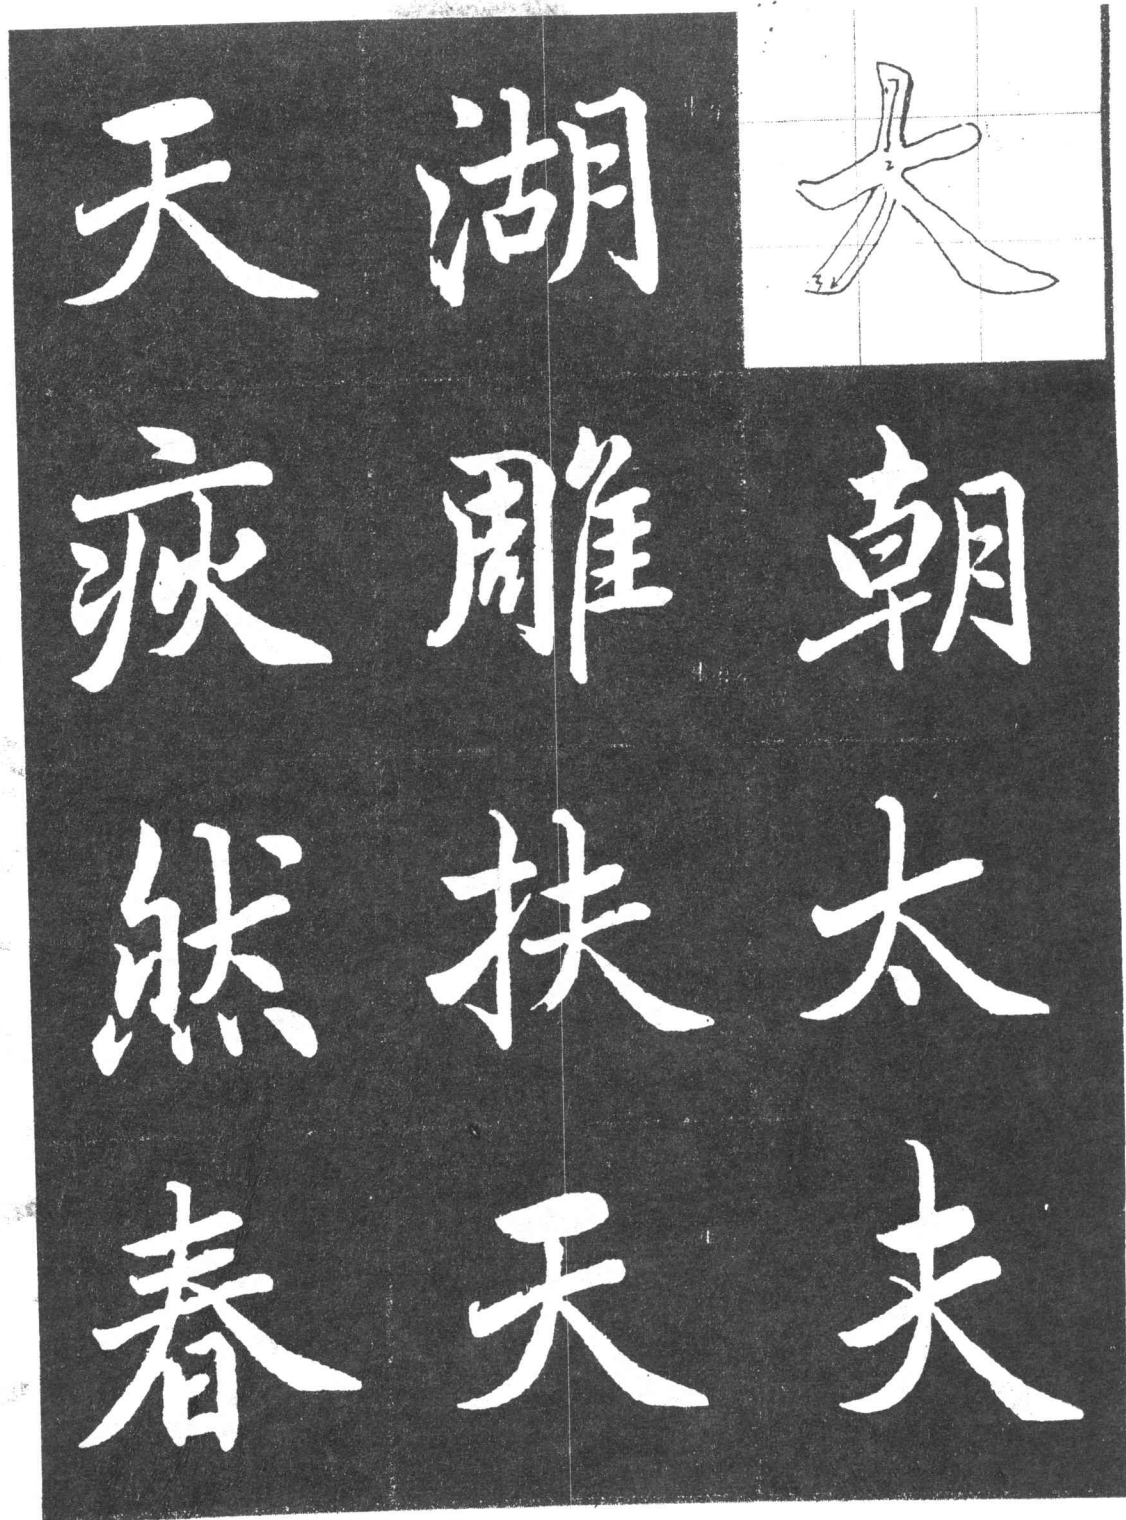 大朝太夫
湖雕扶天
天疢然春